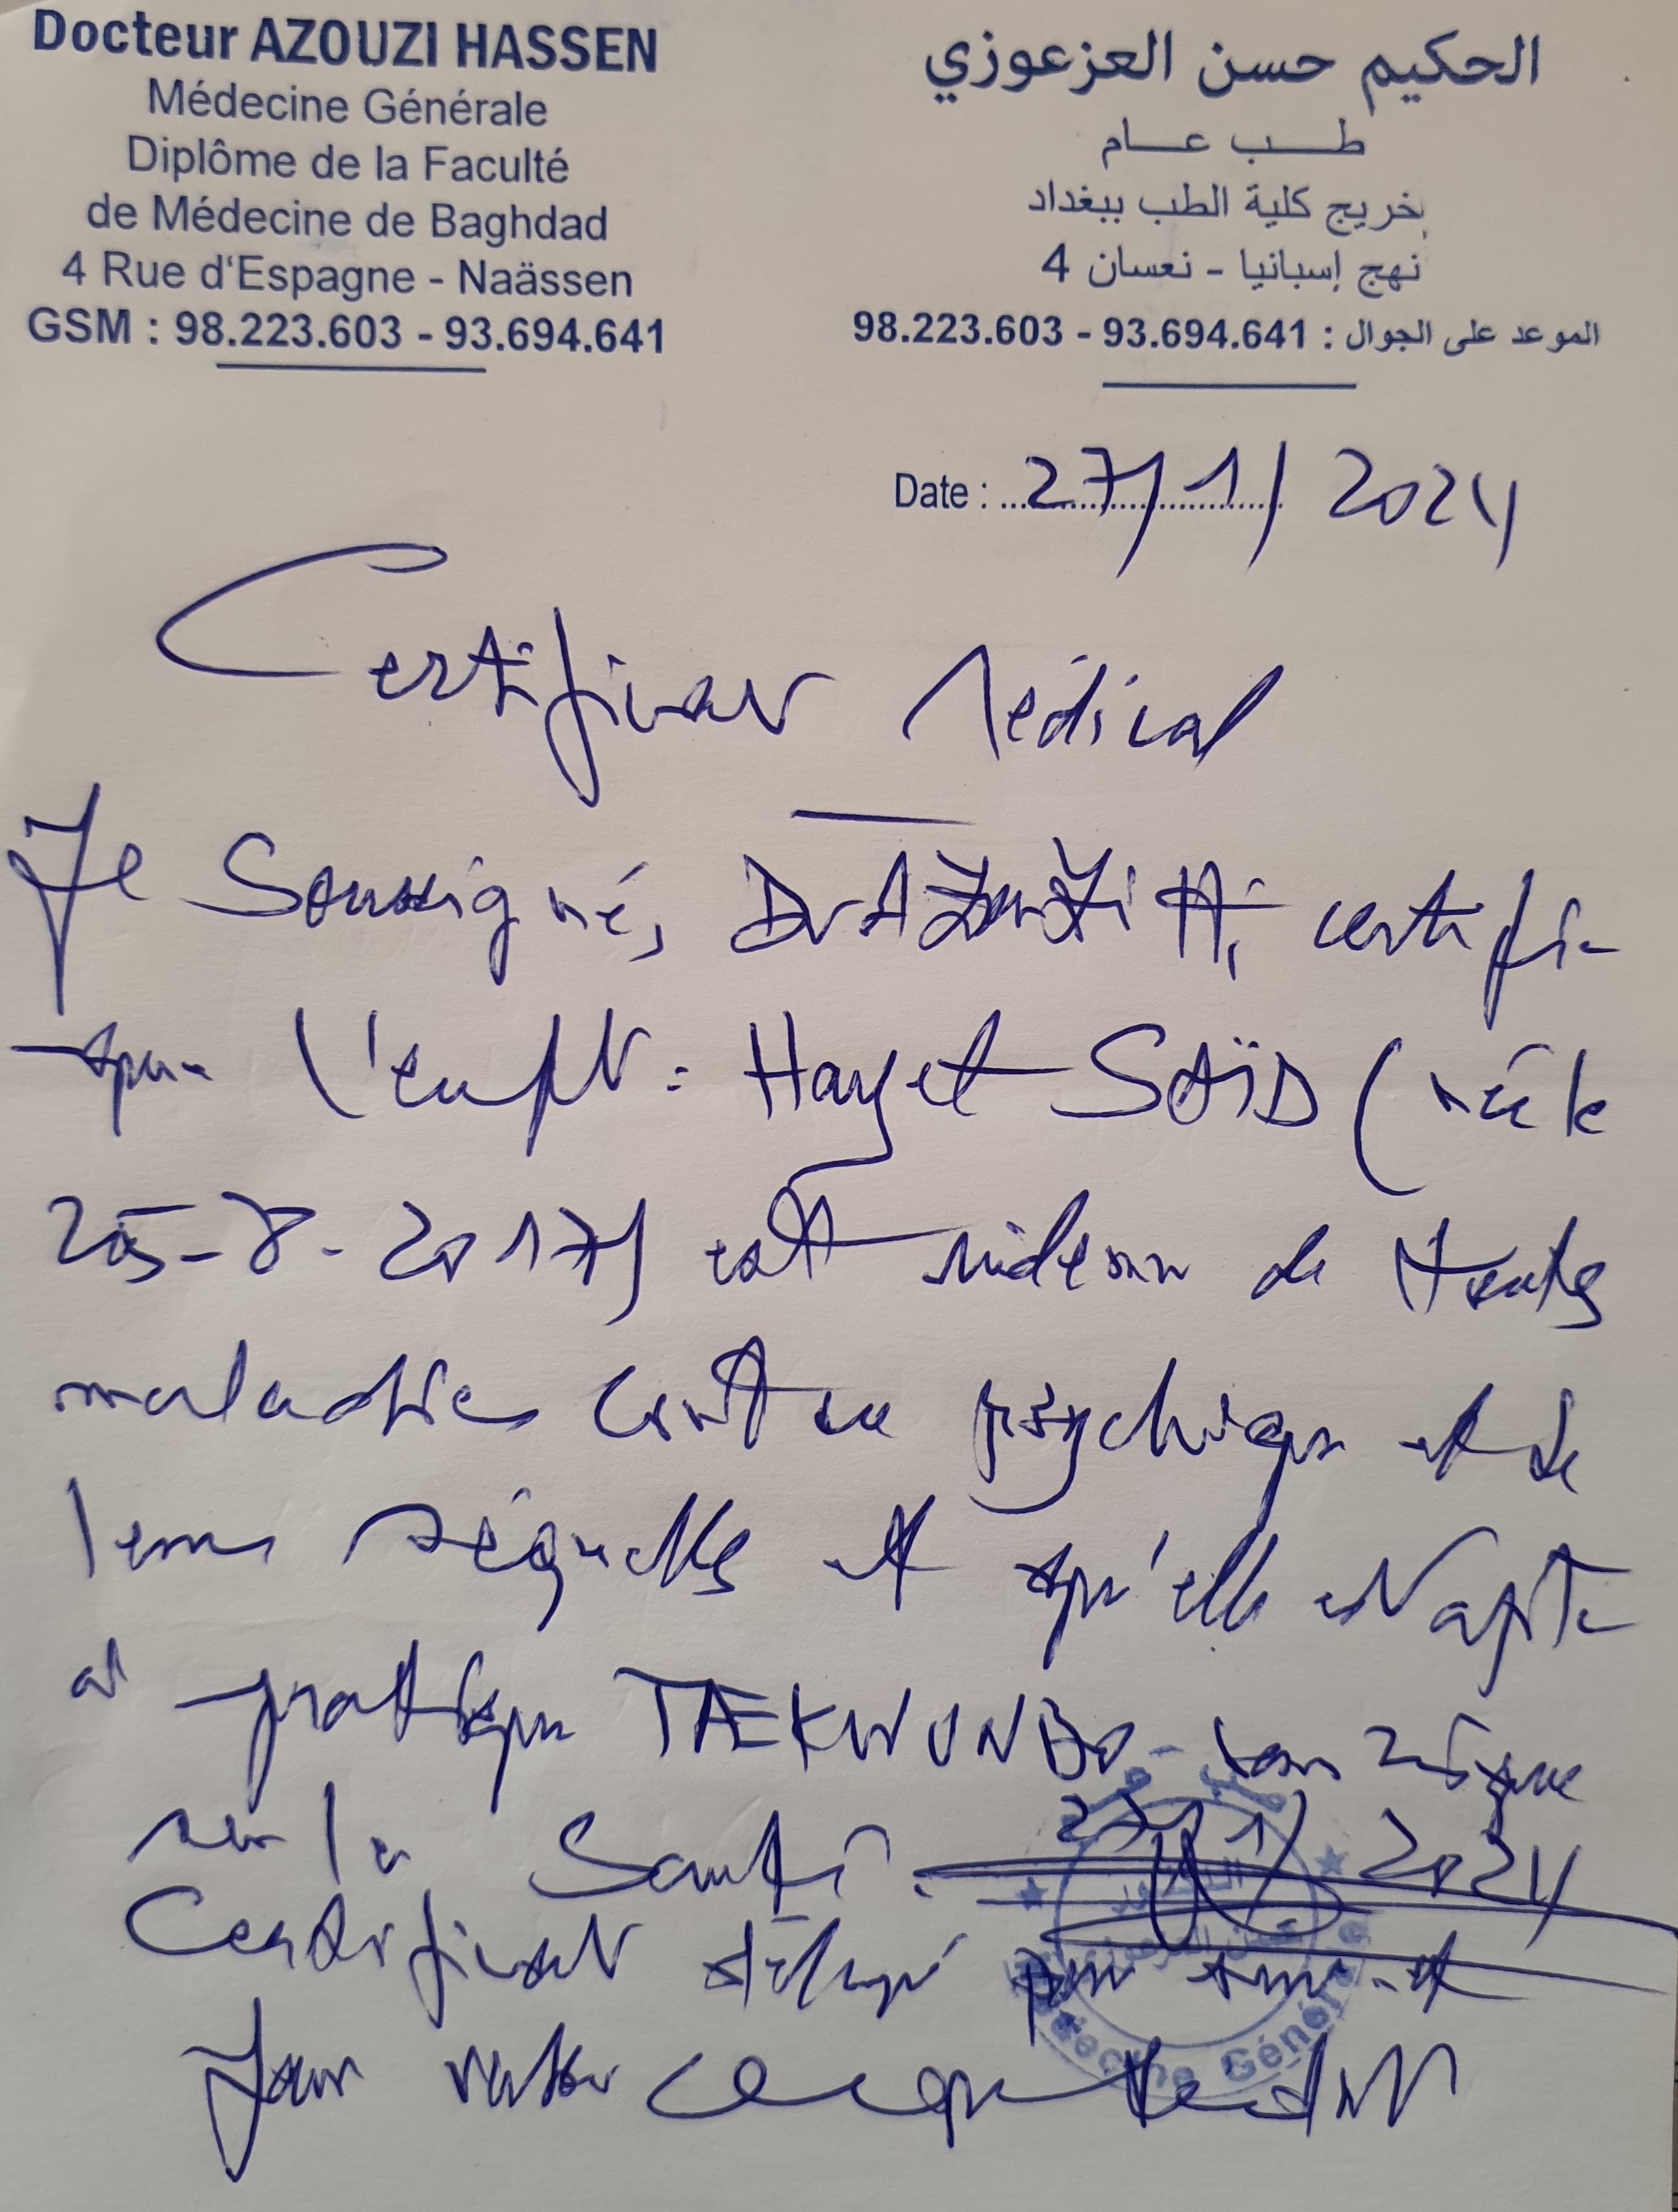 Docteur AZOUZI HASSEN
Médecine Générale
Diplôme de la Faculté
de Médecine de Baghdad
4 Rue d'Espagne - Naässen
GSM : 98.223.603 - 93.694.641
الحكيم حسن العزعوزي
طب عام
خريج كلية الطب ببغداد
4 نهج إسبانيا - نعسان
الموعد على الجوال : 93.694.641 - 98.223.603
Date : 27/1/2024
Certificat Médical
Je Soussigné, Dr AZOUZI H, certifie
que l'enft : Hayet SAÏD (née le
25-8-2017) est indemne de toutes
maladies psychique et de
leurs séquelles et qu'elle est apte
à pratiquer TAEKWONDO sans risque
sur la Santé.
27/1/2024
Certificat délivré pour servir et
faire valoir ce que de droit
Médecine Générale